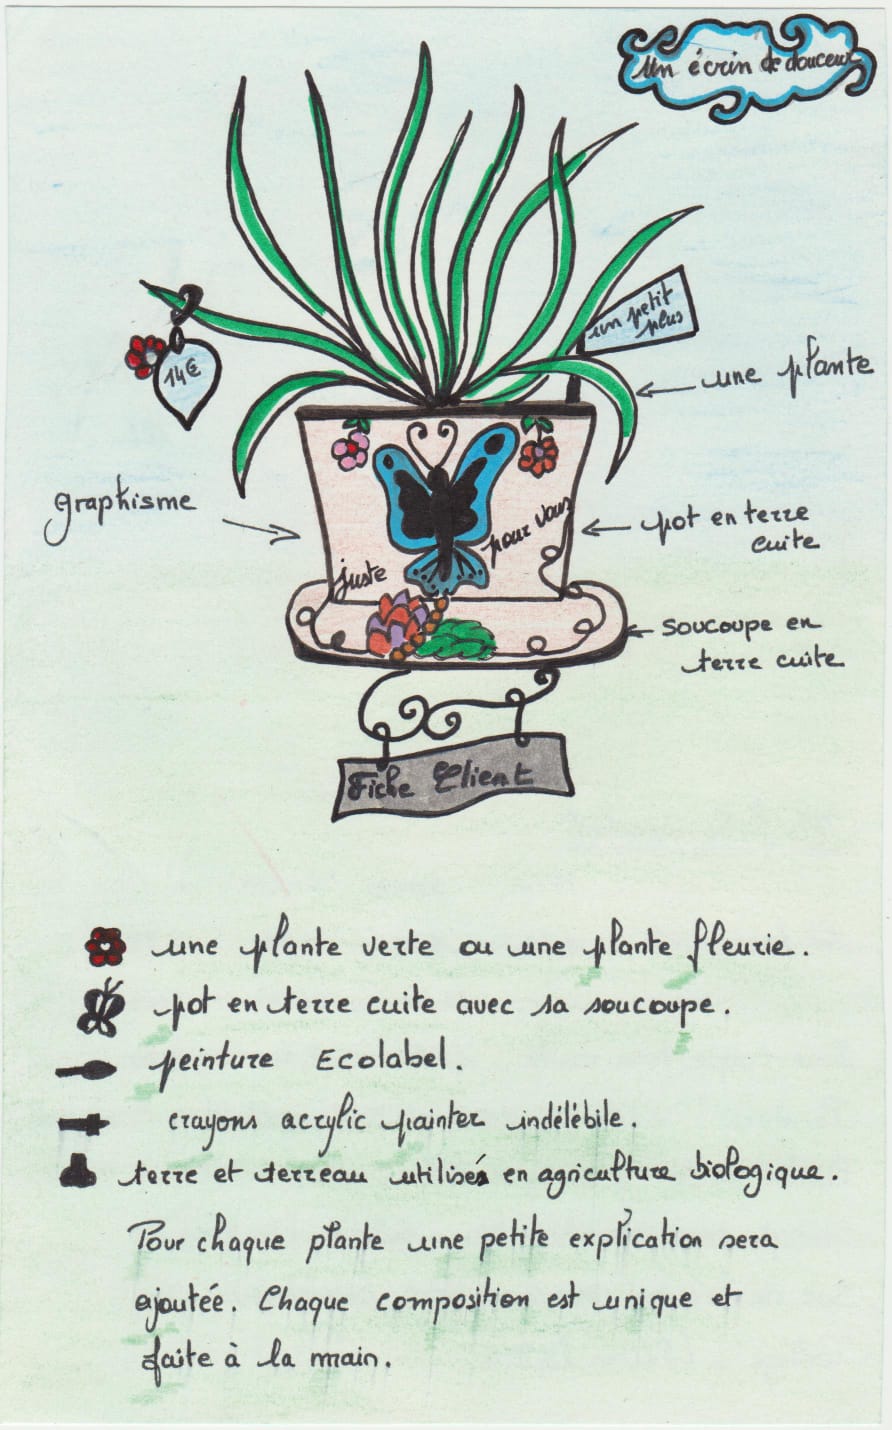 Un écrin de douceur
un petit
plus
14€
une plante
graphisme
pot en terre
cuite
juste
pour vous
soucoupe en
terre cuite
Fiche Client
une plante verte ou une plante fleurie.
pot en terre cuite avec sa soucoupe.
peinture Ecolabel.
crayons acrylic painter indélébile.
terre et terreau utilisés en agriculture biologique.
Pour chaque plante une petite explication sera
ajoutée. Chaque composition est unique et
faite à la main.